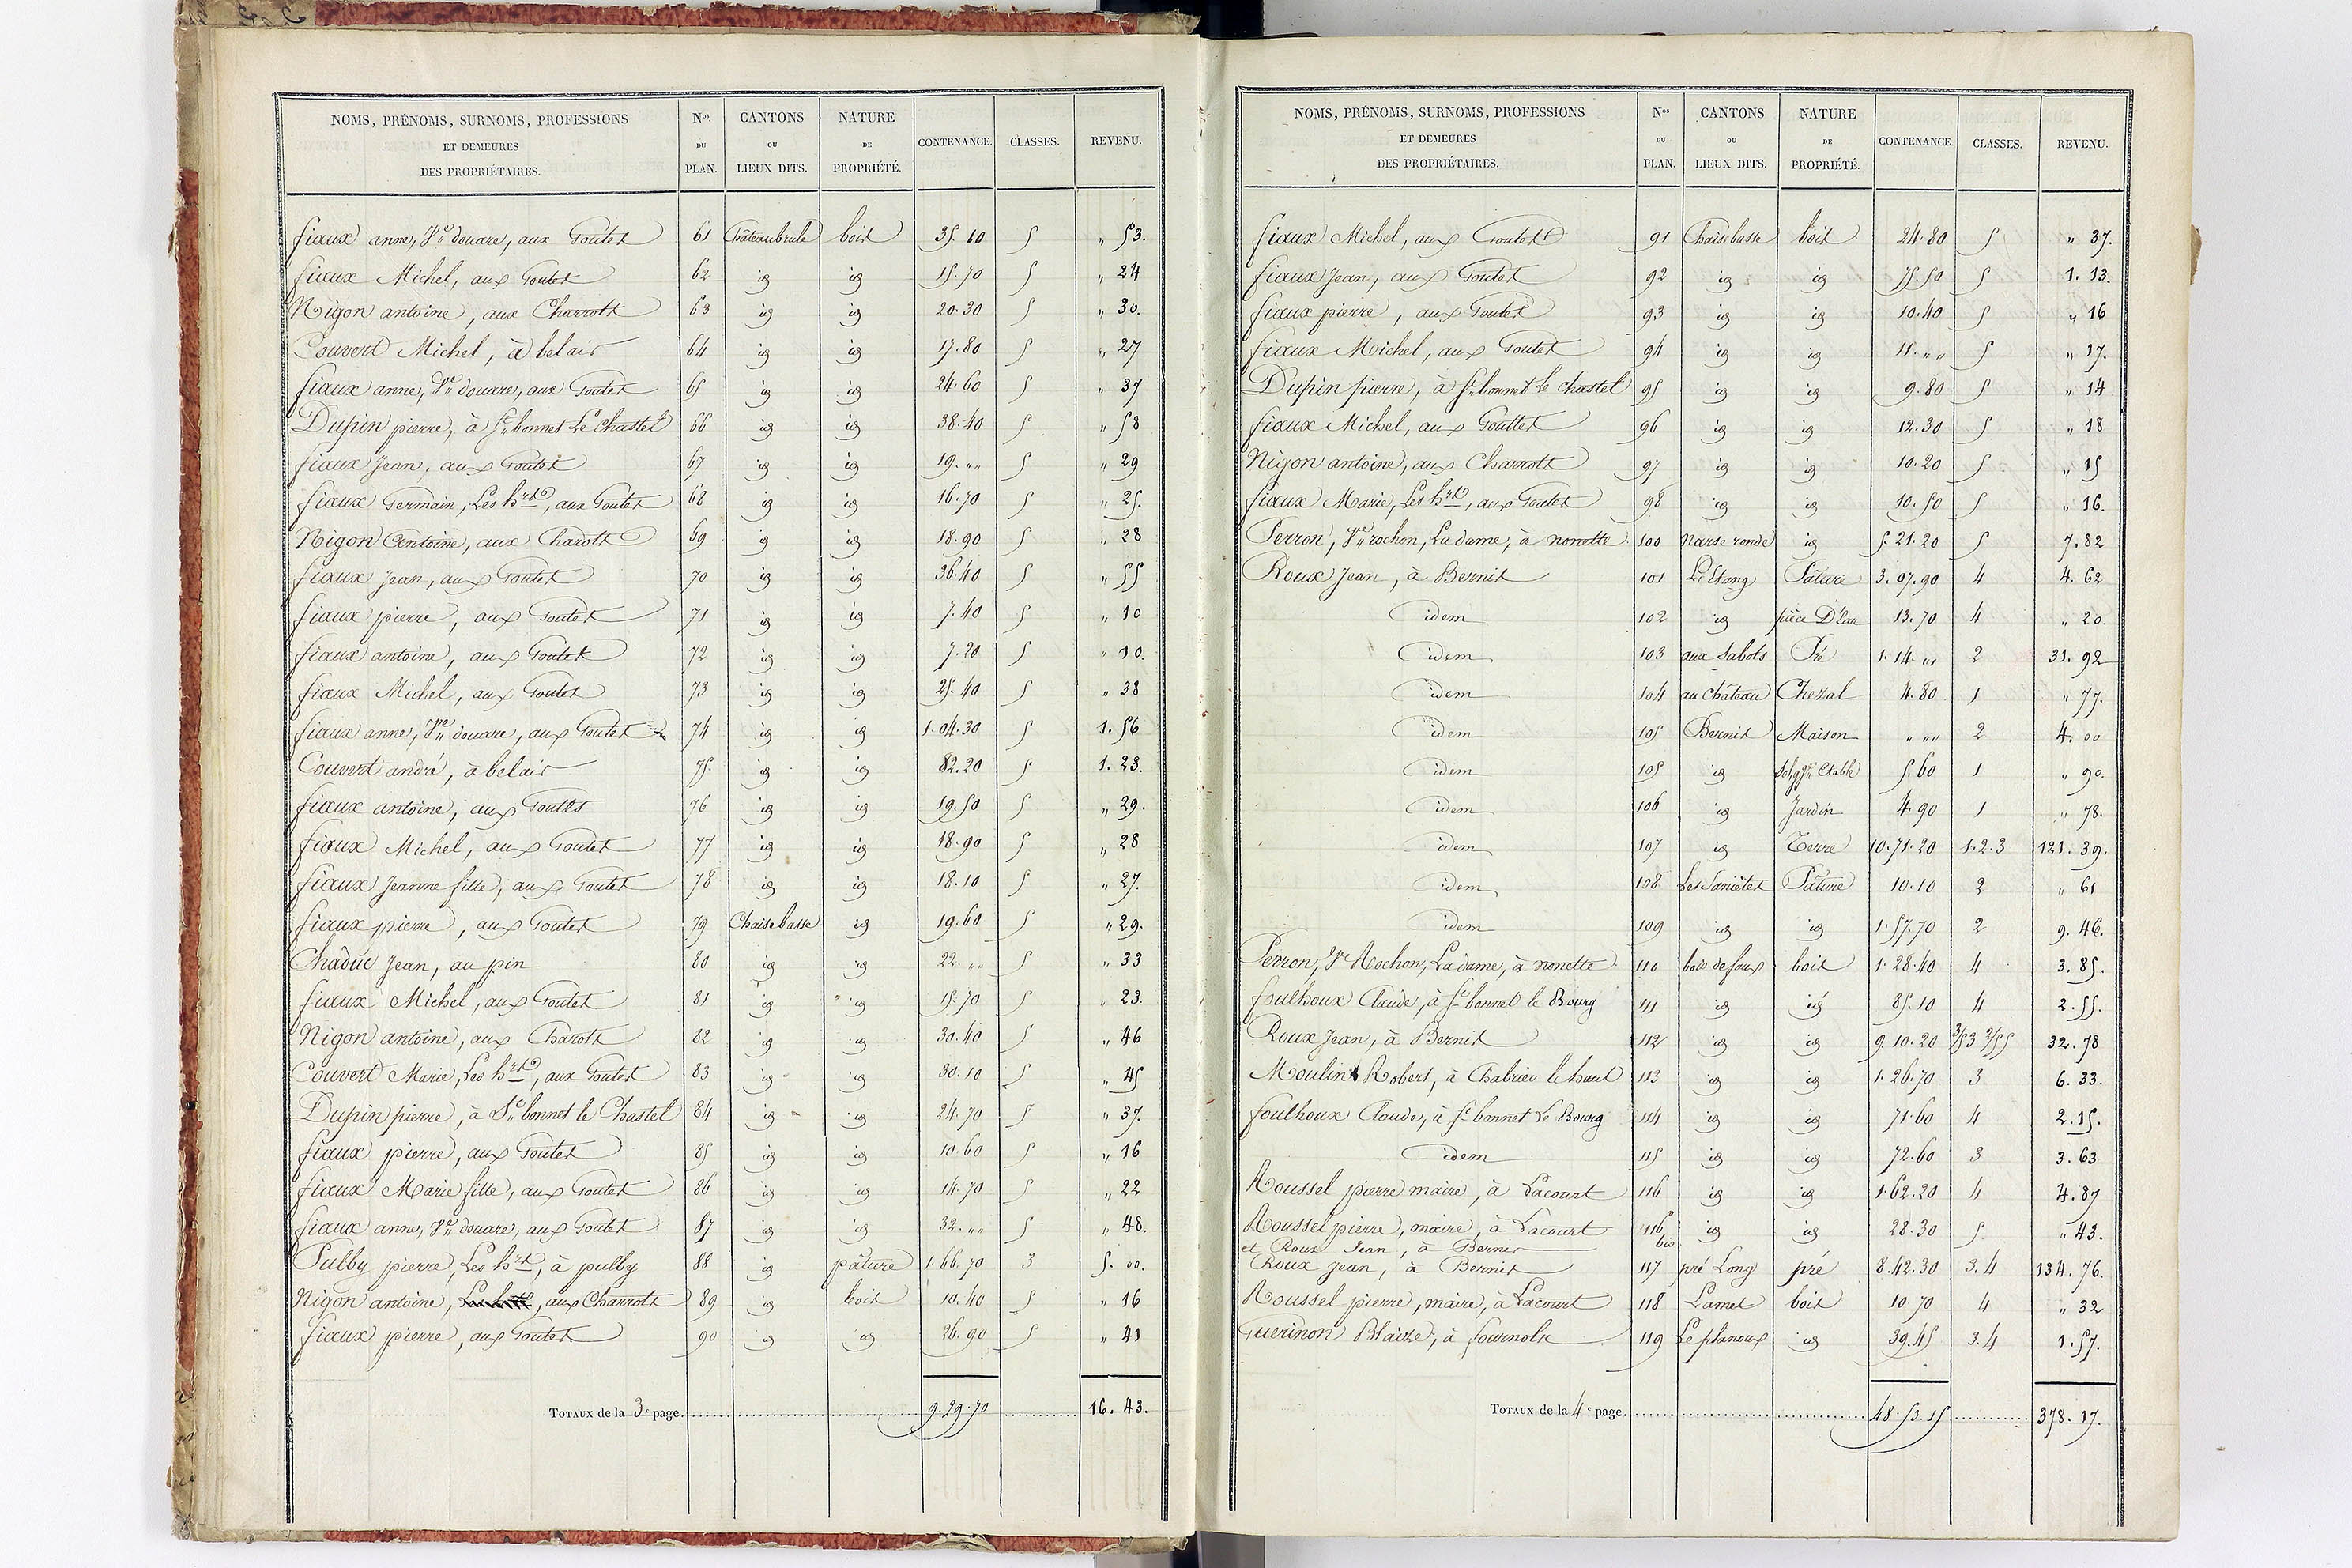 NOMS, PRÉNOMS, SURNOMS, PROFESSIONS ET DEMEURES DES PROPRIÉTAIRES. Nos DU PLAN. CANTONS OU LIEUX DITS. NATURE DE PROPRIÉTÉ. CONTENANCE. CLASSES. REVENU.
fiaux anne, Ve douare, aux Goutet 61 Chateaubrule bois 35.10 5 " 53.
fiaux Michel, aux Goutet 62 id id 15.70 5 " 24
Nigon antoine, aux Charrott 63 id id 20.30 5 " 30.
Couvert Michel, à belair 64 id id 17.80 5 " 27
fiaux anne, Ve douare, aux Goutet 65 id id 24.60 5 " 37
Dupin pierre, à St bonnet Le Chastel 66 id id 38.40 5 " 58
fiaux Jean, aux Goutet 67 id id 19. " " 5 " 29
fiaux Germain, Les hrs, aux Goutet 68 id id 16.70 5 " 25.
Nigon Antoine, aux Charott 69 id id 18.90 5 " 28
fiaux Jean, aux Goutet 70 id id 36.40 5 " 55
fiaux pierre, aux Goutet 71 id id 7.40 5 " 10
fiaux antoine, aux Goutet 72 id id 7.20 5 " 10.
fiaux Michel, aux Goutet 73 id id 25.40 5 " 38
fiaux anne, Ve douare, aux Goutet 74 id id 1.04.30 5 1.56
Couvert andré, à belair 75 id id 82.20 5 1.23.
fiaux antoine, aux Goutes 76 id id 19.50 5 " 29.
fiaux Michel, aux Goutet 77 id id 18.90 5 " 28
fiaux Jeanne fille, aux Goutet 78 id id 18.10 5 " 27.
fiaux pierre, aux Goutet 79 Chaise basse id 19.60 5 " 29.
Chaduc Jean, au pin 80 id id 22. " " 5 " 33
fiaux Michel, aux Goutet 81 id id 15.70 5 " 23.
Nigon antoine, aux Charott 82 id id 30.40 5 " 46
Couvert Marie, Les hrs, aux Goutet 83 id id 30.10 5 " 45
Dupin pierre, à St bonnet le Chastel 84 id id 24.70 5 " 37.
fiaux pierre, aux Goutet 85 id id 10.60 5 " 16
fiaux Marie fille, aux Goutet 86 id id 14.70 5 " 22
fiaux anne, Ve douare, aux Goutet 87 id id 32. " " 5 " 48.
Pulby pierre, Les hrs, à pulby 88 id pâture 1.66.70 3 5.00.
Nigon antoine, aux Charrott 89 id bois 10.40 5 " 16
fiaux pierre, aux Goutet 90 id id 26.90 5 " 41
TOTAUX de la 3e page. 9.29.70 16.43.
NOMS, PRÉNOMS, SURNOMS, PROFESSIONS ET DEMEURES DES PROPRIÉTAIRES. Nos DU PLAN. CANTONS OU LIEUX DITS. NATURE DE PROPRIÉTÉ. CONTENANCE. CLASSES. REVENU.
fiaux Michel, aux Goutet 91 Chaise basse bois 24.80 5 " 37.
fiaux Jean, aux Goutet 92 id id 75.50 5 1.13.
fiaux pierre, aux Goutet 93 id id 10.40 5 " 16
fiaux Michel, aux Goutet 94 id id 11. " " 5 " 17.
Dupin pierre, à St bonnet Le chastel 95 id id 9.80 5 " 14
fiaux Michel, aux Gouttet 96 id id 12.30 5 " 18
Nigon antoine, aux Charrott 97 id id 10.20 5 " 15
fiaux Marie, Les hrs, aux Goutet 98 id id 10.50 5 " 16.
Perron, Ve rochon, La dame, à nonette 100 Narse ronde id 5.21.20 5 7.82
Roux Jean, à Bernis 101 L'Etang Pâture 3.07.90 4 4.62
idem 102 id pièce D'Eau 13.70 4 " 20.
idem 103 aux Sabots Pré 1.14. " 2 31.92
idem 104 au château Chezal 4.80 1 " 77.
idem 105 Bernis Maison " " " 2 4.00
idem 105 id 5.60 1 " 90.
idem 106 id Jardin 4.90 1 " 78.
idem 107 id Terre 10.71.20 1.2.3 121.39.
idem 108 Pâture 10.10 2 " 61
idem 109 id id 1.57.70 2 9.46.
Perron, Ve Rochon, La dame, à nonette 110 bois de faux bois 1.28.40 4 3.85.
foulhoux Claude, à St bonnet le Bourg 111 id id 85.10 4 2.55.
Roux Jean, à Bernis 112 id id 9.10.20 3/5 3 2/5 5 32.78
Moulin Robert, à Chabrier le haut 113 id id 1.26.70 3 6.33.
foulhoux Claude, à St bonnet Le Bourg 114 id id 71.60 4 2.15.
idem 115 id id 72.60 3 3.63
Roussel pierre maire, à Lacourt 116 id id 1.62.20 4 4.87
Roussel pierre, maire, à Lacourt 116 bis id id 28.30 5 " 43.
et Roux Jean, à Bernis
Roux Jean, à Bernis 117 pré Long pré 8.42.30 3.4 134.76.
Roussel pierre, maire, à Lacourt 118 Lamet bois 10.70 4 " 32
Guerinon Blaize, à fournols 119 Le planoux id 39.45 3.4 1.57.
TOTAUX de la 4e page. 48.53.15 378.17.